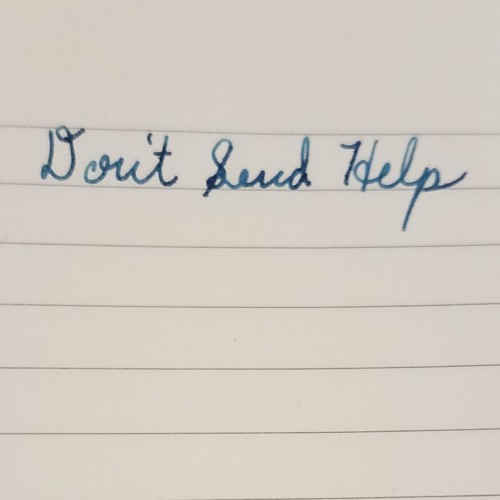 Don't Send Help